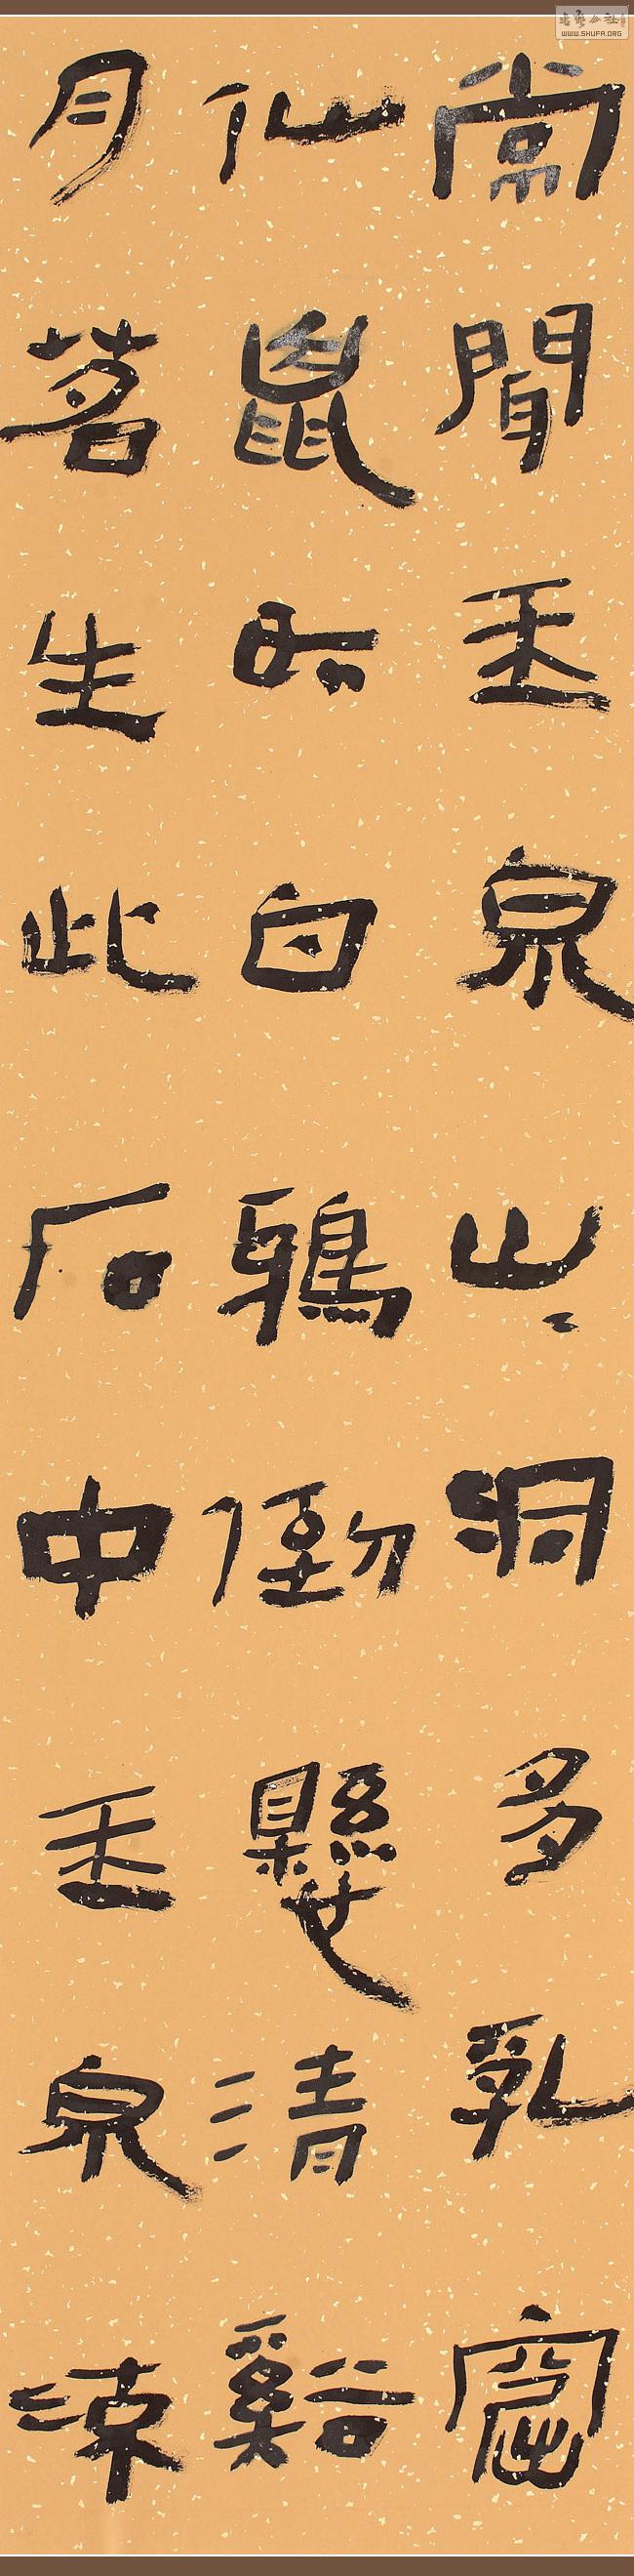 常聞玉泉山〻洞多乳窟
仙鼠如白鴉倒懸清谿
月茗生此石中玉泉流
WWW.SHUFA.ORG